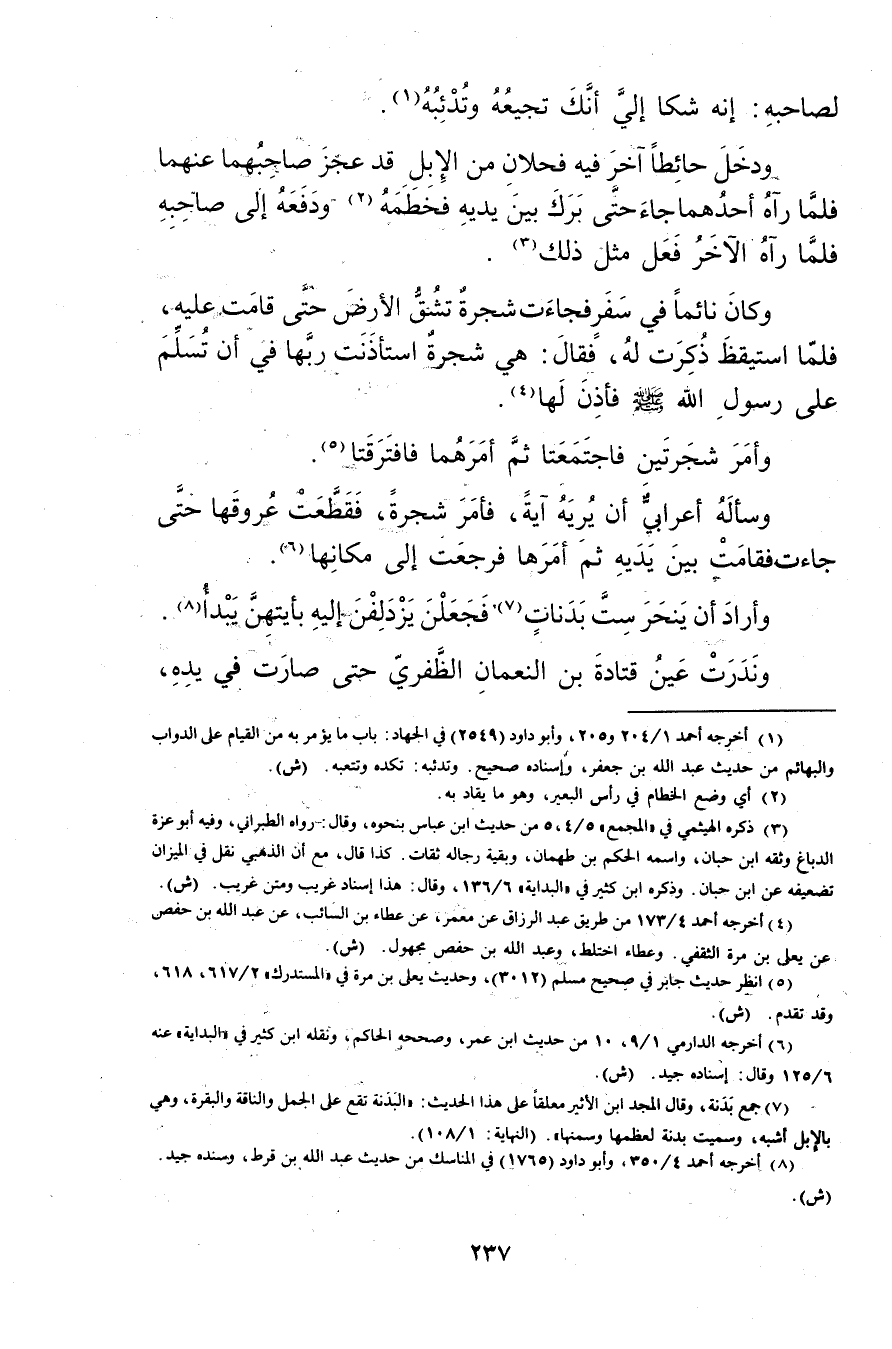 لصاحبهِ: إنه شكا إليَّ أنَّكَ تجيعُهُ وتُدْئِبُهُ(١).
ودخَلَ حائِطاً آخرَ فيه فحلانِ من الإِبلِ قد عجَزَ صاحِبُهما عنهما
فلمَّا رآهُ أحدُهما جاءَ حتَّى بَرَكَ بينَ يديهِ فخَطَمَهُ(٢) ودَفَعَهُ إلى صاحِبِهِ
فلمَّا رآهُ الآخَرُ فَعَل مثل ذلك(٣).
وكانَ نائماً في سَفَرٍ فجاءَت شجرةٌ تشُقُّ الأرضَ حتَّى قامَت عليهِ،
فلمّا استيقظَ ذُكِرَت لهُ، فقالَ: هي شجرةٌ استأذَنَت ربَّها في أن تُسَلِّمَ
على رسولِ الله ﷺ فأذِنَ لَها(٤).
وأمَرَ شجَرتَينِ فاجتَمَعَتا ثمَّ أمَرَهُما فافتَرَقَتا(٥).
وسألَهُ أعرابيٌّ أن يُريَهُ آيةً، فأمَرَ شجرةً، فَقَطَّعَتْ عُروقَها حتَّى
جاءت فقامَتْ بينَ يَدَيهِ ثمَ أمَرَها فرجعَت إلى مكانِها(٦).
وأرادَ أن يَنحَرَ سِتَّ بَدَناتٍ(٧) فَجَعَلْنَ يَزْدَلِفْنَ إليهِ بأيتهِنَّ يَبْدأُ(٨).
ونَدَرَتْ عَينُ قتادةَ بن النعمانِ الظَّفريّ حتى صارَت في يدِهِ،
(١) أخرجه أحمد ٢٠٤/١ و٢٠٥، وأبو داود (٢٥٤٩) في الجهاد: باب ما يؤمر به من القيام على الدواب
والبهائم من حديث عبد الله بن جعفر، وإسناده صحيح. وتدئبه: تكده وتتعبه. (ش).
(٢) أي وضع الخطام في رأس البعير، وهو ما يقاد به.
(٣) ذكره الهيثمي في «المجمع» ٤/٥، ٥ من حديث ابن عباس بنحوه، وقال: رواه الطبراني، وفيه أبو عزة
الدباغ وثقه ابن حبان، واسمه الحكم بن طهمان، وبقية رجاله ثقات. كذا قال، مع أن الذهبي نقل في الميزان
تضعيفه عن ابن حبان. وذكره ابن كثير في «البداية» ١٣٦/٦، وقال: هذا إسناد غريب ومتن غريب. (ش).
(٤) أخرجه أحمد ١٧٣/٤ من طريق عبد الرزاق عن معمر، عن عطاء بن السائب، عن عبد الله بن حفص
عن يعلى بن مرة الثقفي. وعطاء اختلط، وعبد الله بن حفص مجهول. (ش).
(٥) انظر حديث جابر في صحيح مسلم (٣٠١٢)، وحديث يعلى بن مرة في «المستدرك» ٦١٧/٢، ٦١٨،
وقد تقدم. (ش).
(٦) أخرجه الدارمي ٩/١، ١٠ من حديث ابن عمر، وصححه الحاكم، ونقله ابن كثير في «البداية» عنه
١٢٥/٦ وقال: إسناده جيد. (ش).
(٧) جمع بَدَنة، وقال المجد ابن الأثير معلقاً على هذا الحديث: «البَدَنة تقع على الجمل والناقة والبقرة، وهي
بالإبل أشبه، وسميت بدنة لعظمها وسمنها». (النهاية: ١٠٨/١).
(٨) أخرجه أحمد ٣٥٠/٤، وأبو داود (١٧٦٥) في المناسك من حديث عبد الله بن قرط، وسنده جيد.
(ش).
٢٣٧